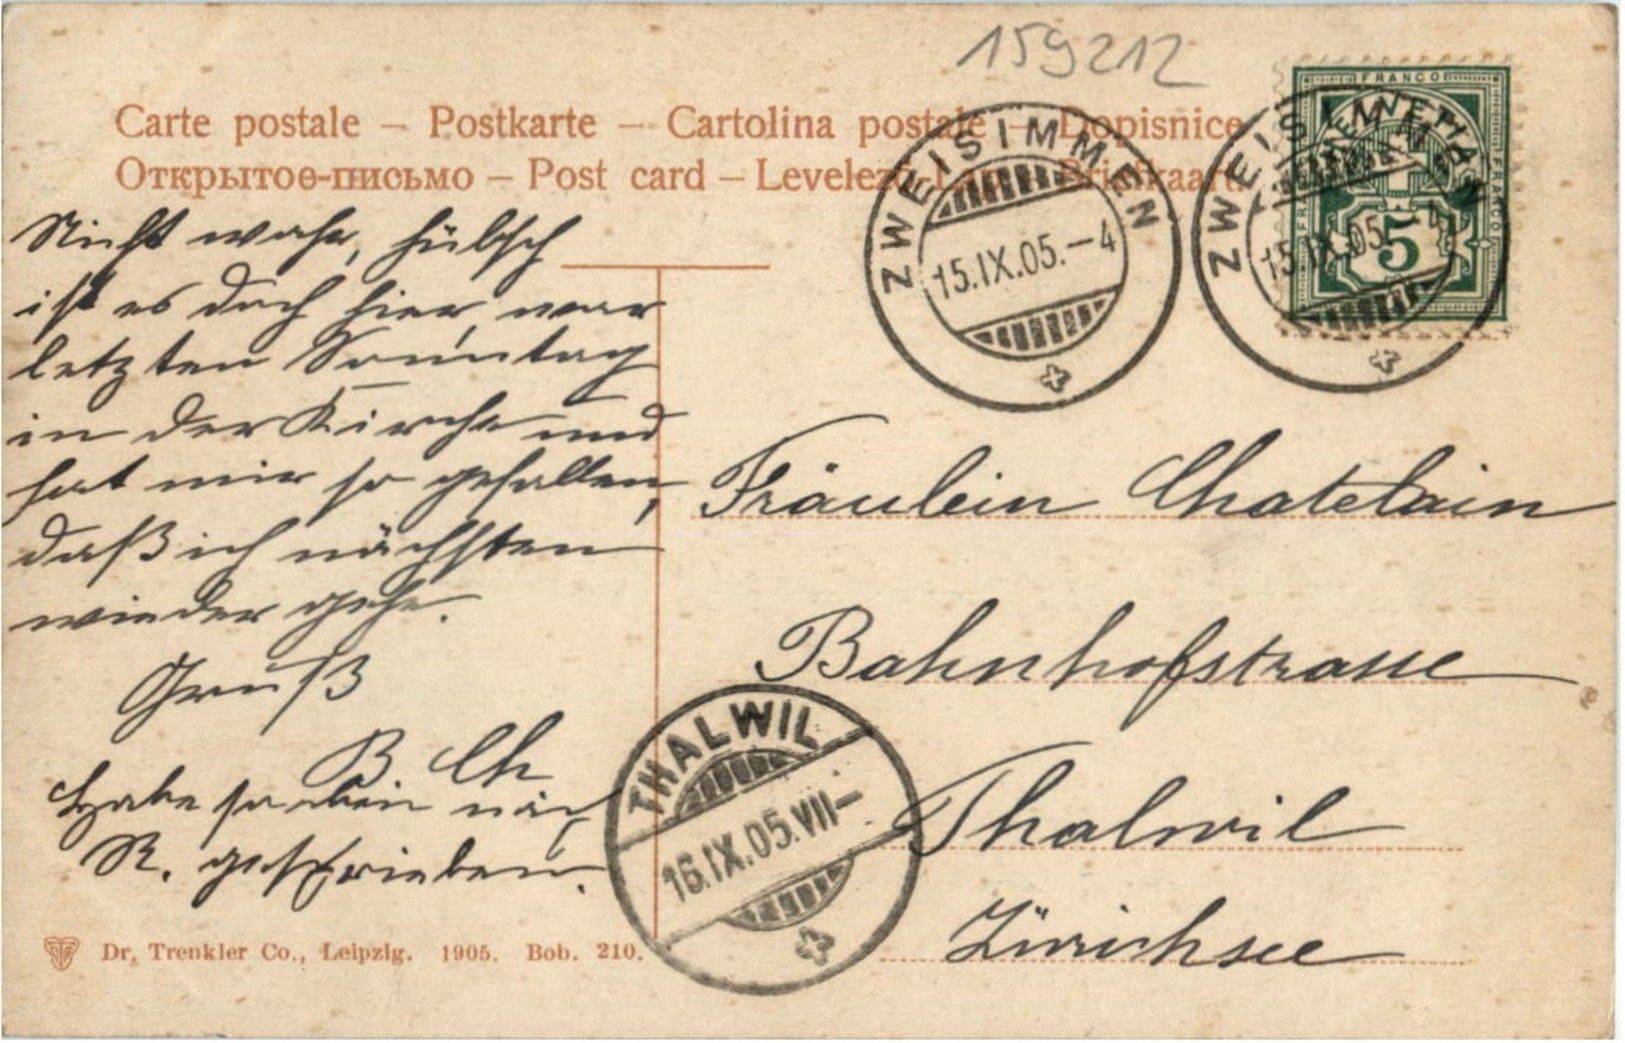 159212
Carte postale – Postkarte – Cartolina postale – Dopisnice
Открытое-письмо – Post card – Levelező-Lap – Briefkaart
FRANCO
FRANCO
5
ZWEISIMMEN
15.IX.05.–4
ZWEISIMMEN
15.IX.05.–4
Nicht wahr, hübsch
ist es doch hier, war
letzten Sonntag
in der Kirche und
hat mir so gefallen,
daß ich nächsten
wieder gehe.
Gruß
B. Ch
Habe so eben nach
R. geschrieben.
Fräulein Chatelain
Bahnhofstrasse
Thalwil
Zürichsee
THALWIL
16.IX.05.VII–
Dr. Trenkler Co., Leipzig. 1905. Bob. 210.